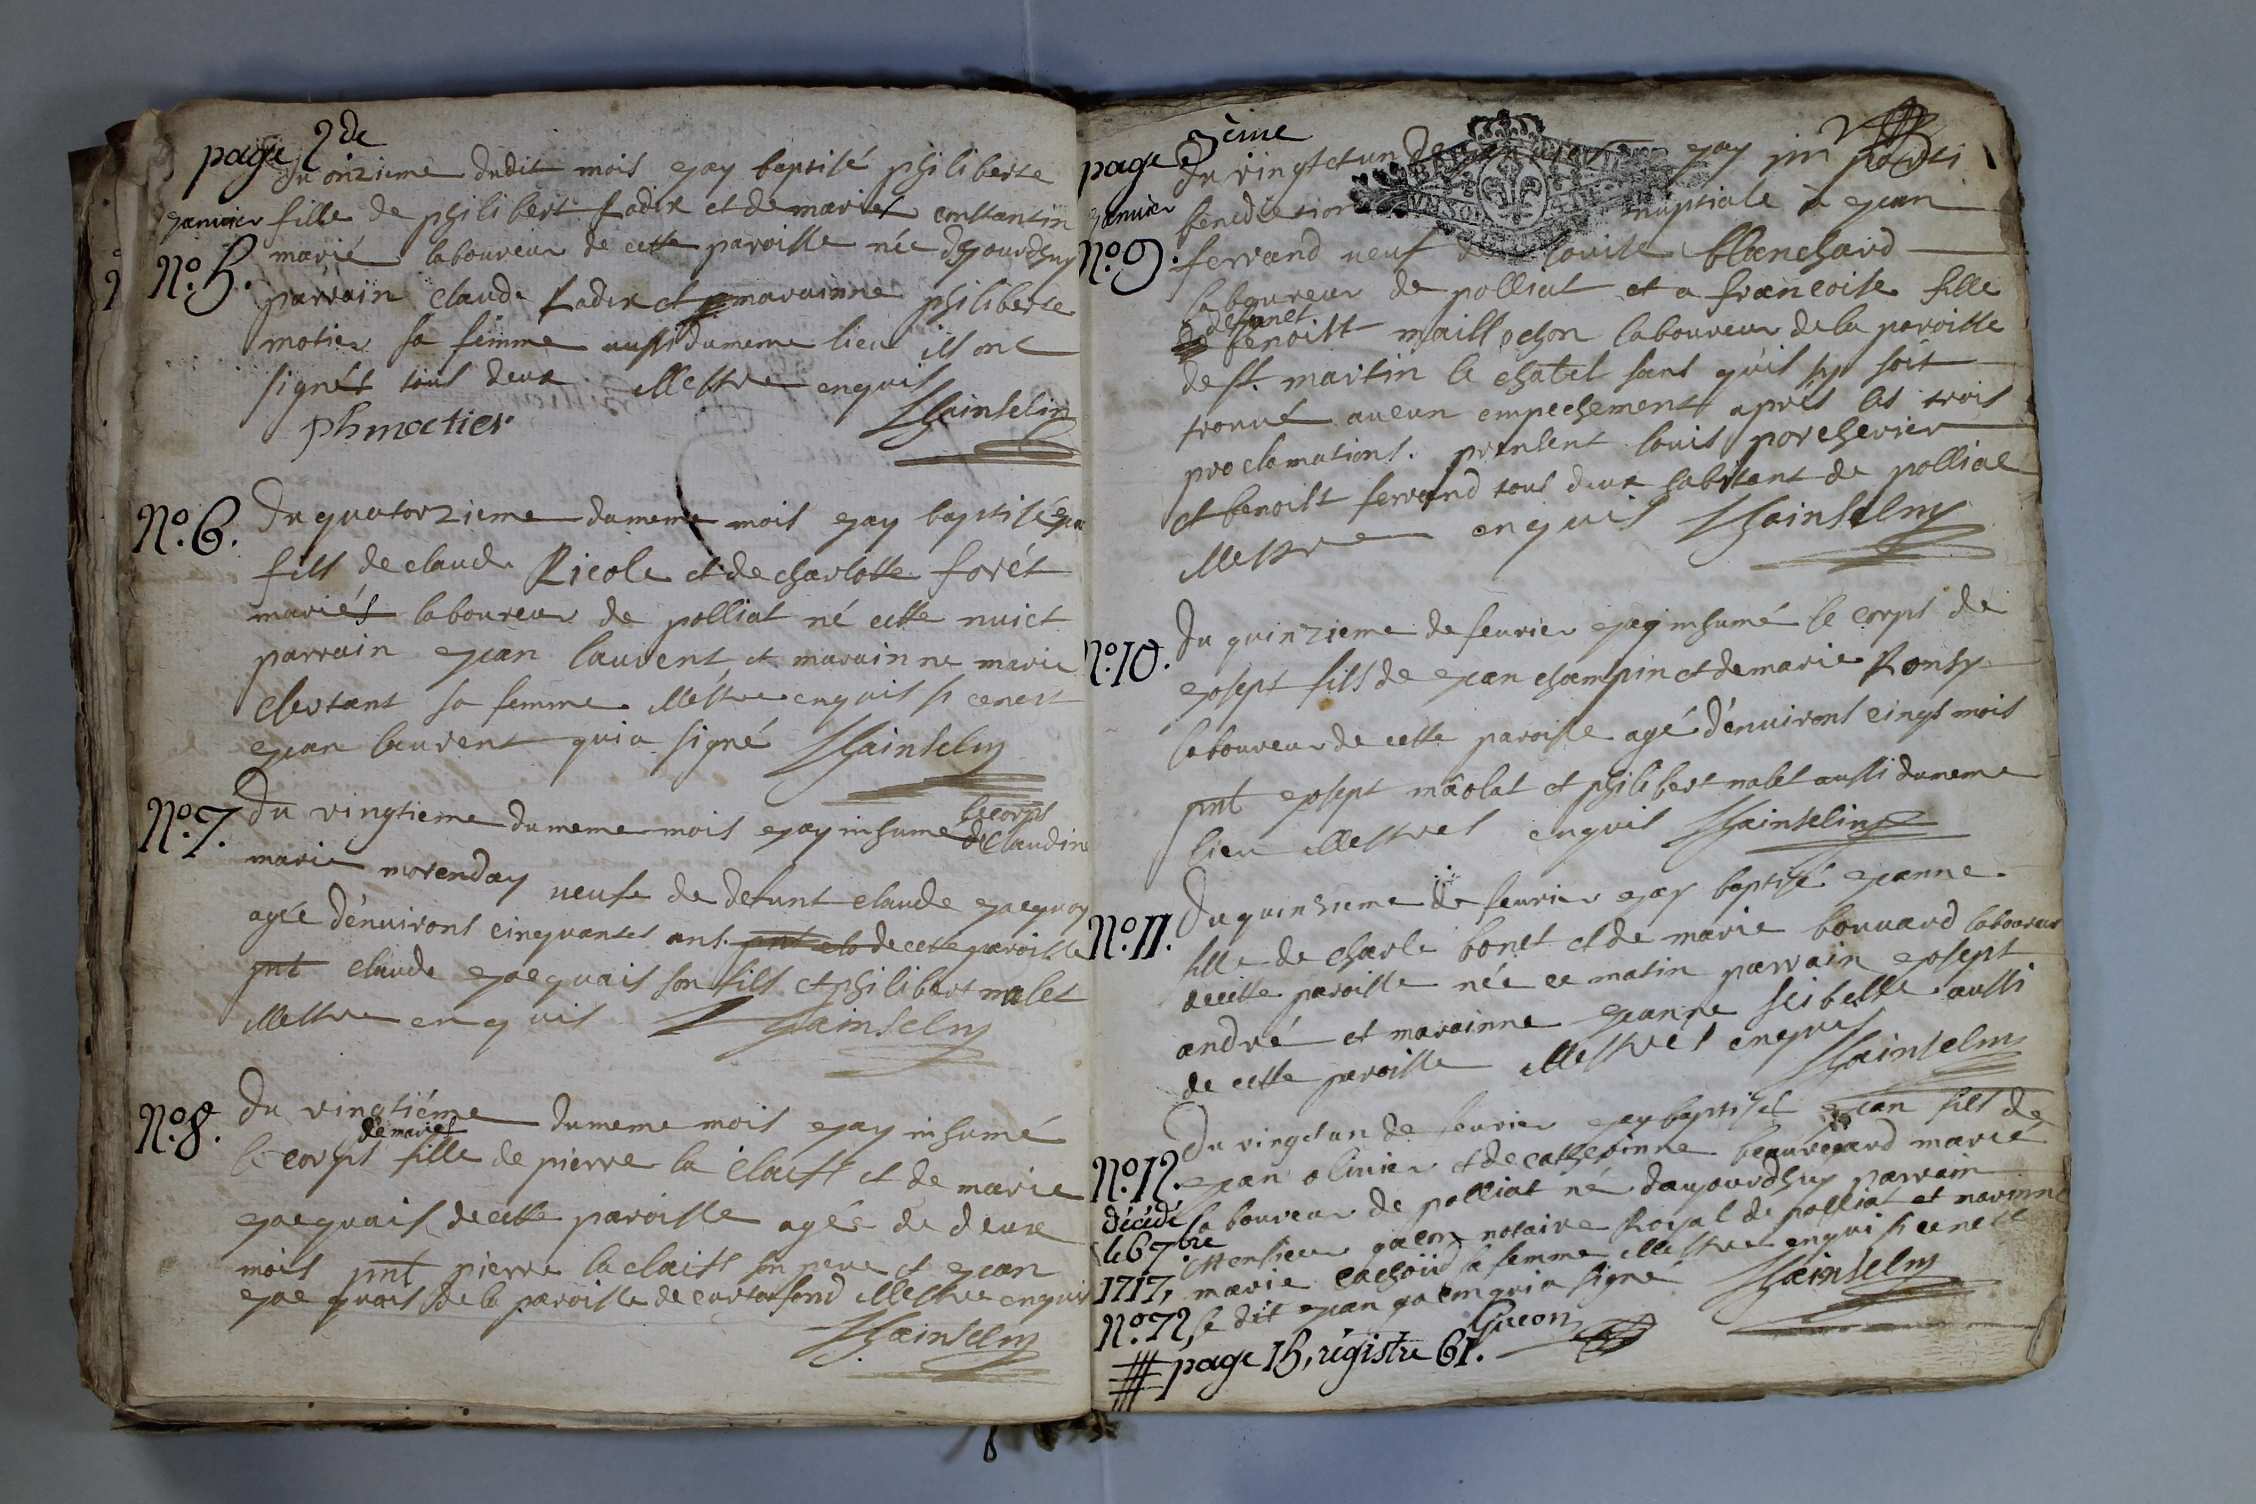 page 2de
Du onzieme dudit mois ejay baptisé philiberte
janvier fille de philibert Radix et de mariet constantin
No. 5. marié laboureur de cette paroisse née dejourdhuy
parrain claude Radix et marainne philiberte
motier sa femme aussi du meme lieu ils ont
signés tous deux illestre enquis
phmoctier Hainselin
No. 6. Du quatorzieme du meme mois ejay baptisé
fils de claude Ricole et de charlotte forét
mariés laboureur de polliat né cette nuict
parrain ejean laurent et marainne marie
clertant sa femme illestre enquis si cenest
ejean laurent qui a signé Hainselin
le corps
No. 7. Du vingtieme du meme mois ejay inhumé de Claudin
marie morenday veufe de defunt claude ejacquoy
agée d'enuirons cinquantes ans de cette paroisse
pnt claude ejacquais son fils et philibert malet
illestre enquis Hainselin
No. 8. Du vingtiéme du meme mois ejay inhumé
de mariet
le corps fille de pierre la claist et de marie
ejacquais de cette paroisse agée de deux
mois pnt pierre la claist son pere et ejean
ejacquais de la paroisse de curtafond illestre enquis
Hainselin
page 3ème
Du vingt et un de ejay
janvier benediction nuptiale à ejean
No. 9. ferrand veuf de louise blanchard
laboureur de polliat et a francoise fille
defunct
benoist maillochon laboureur de la paroisse
de st. martin le chatel sans quis sy soit
trouué aucun empechement après les trois
proclamations. present louis porcherier
et benoist ferrand tous deux habitant de polliat
illestre enquis Hainselin
No. 10. Du quinzieme de feurier ejay inhumé le corps de
ejosept fils de ejean champin et de marie Ronsy
laboureur de cette paroisse agé d'enuirons cinqs mois
pnt ejosept mâolat et philibert malet aussi du meme
lieu illestres enquis Hainselin
No. 11. Du quinzieme de feurier ejay baptisé ejeanne
fille de charle bonet et de marie bouuard laboureur
de cette paroisse née ce matin parrain ejosept
andré et marainne ejeanne seibette aussi
de cette paroisse illestres enquis
Hainselin
Du vingt un de feurier ejay baptisés ejean fils de
No. 12. ejean oliuier et de catherinne beauregard marié
décédé laboureur de polliat né daujourdhuy parrain
le 6 7bre Monsieur gacon notaire Royal de polliat et marinne
1717, marie cachoüd sa femme illestre enqui si ce nest
No. 72, le dit ejean gacon qui a signé Hainselin
page 15, régistre 61. Gacon